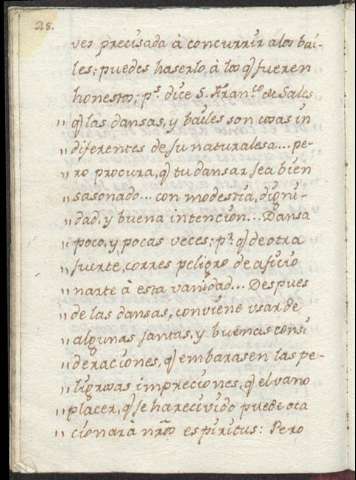 28.
ves precisada à concurrir a los bai-
les; puedes haserlo à los q̃ fueren
honestos; p.s dice S. Fran.co de Sales
,, q̃ las dansas, y bailes son cosas in
,, diferentes de su naturalesa... pe-
,, ro procura, q̃ tu dansar, sea bien
,, sasonado... con modestia, digni-
,, dad, y buena intencion... Dansa
,, poco, y pocas veces; p.r q̃ de otra
,, suerte, corres peligro de aficio
,, narte à esta vanidad... Despues
,, de las dansas, conviene usar de
,, algunas santas, y buenas consi
,, deraciones, q̃ embarasen las pe-
,, ligrosas impreciones, q̃ el vano
,, placer, q̃ se ha recivido puede oca
,, cionar à nr̃os espiritus: Pero